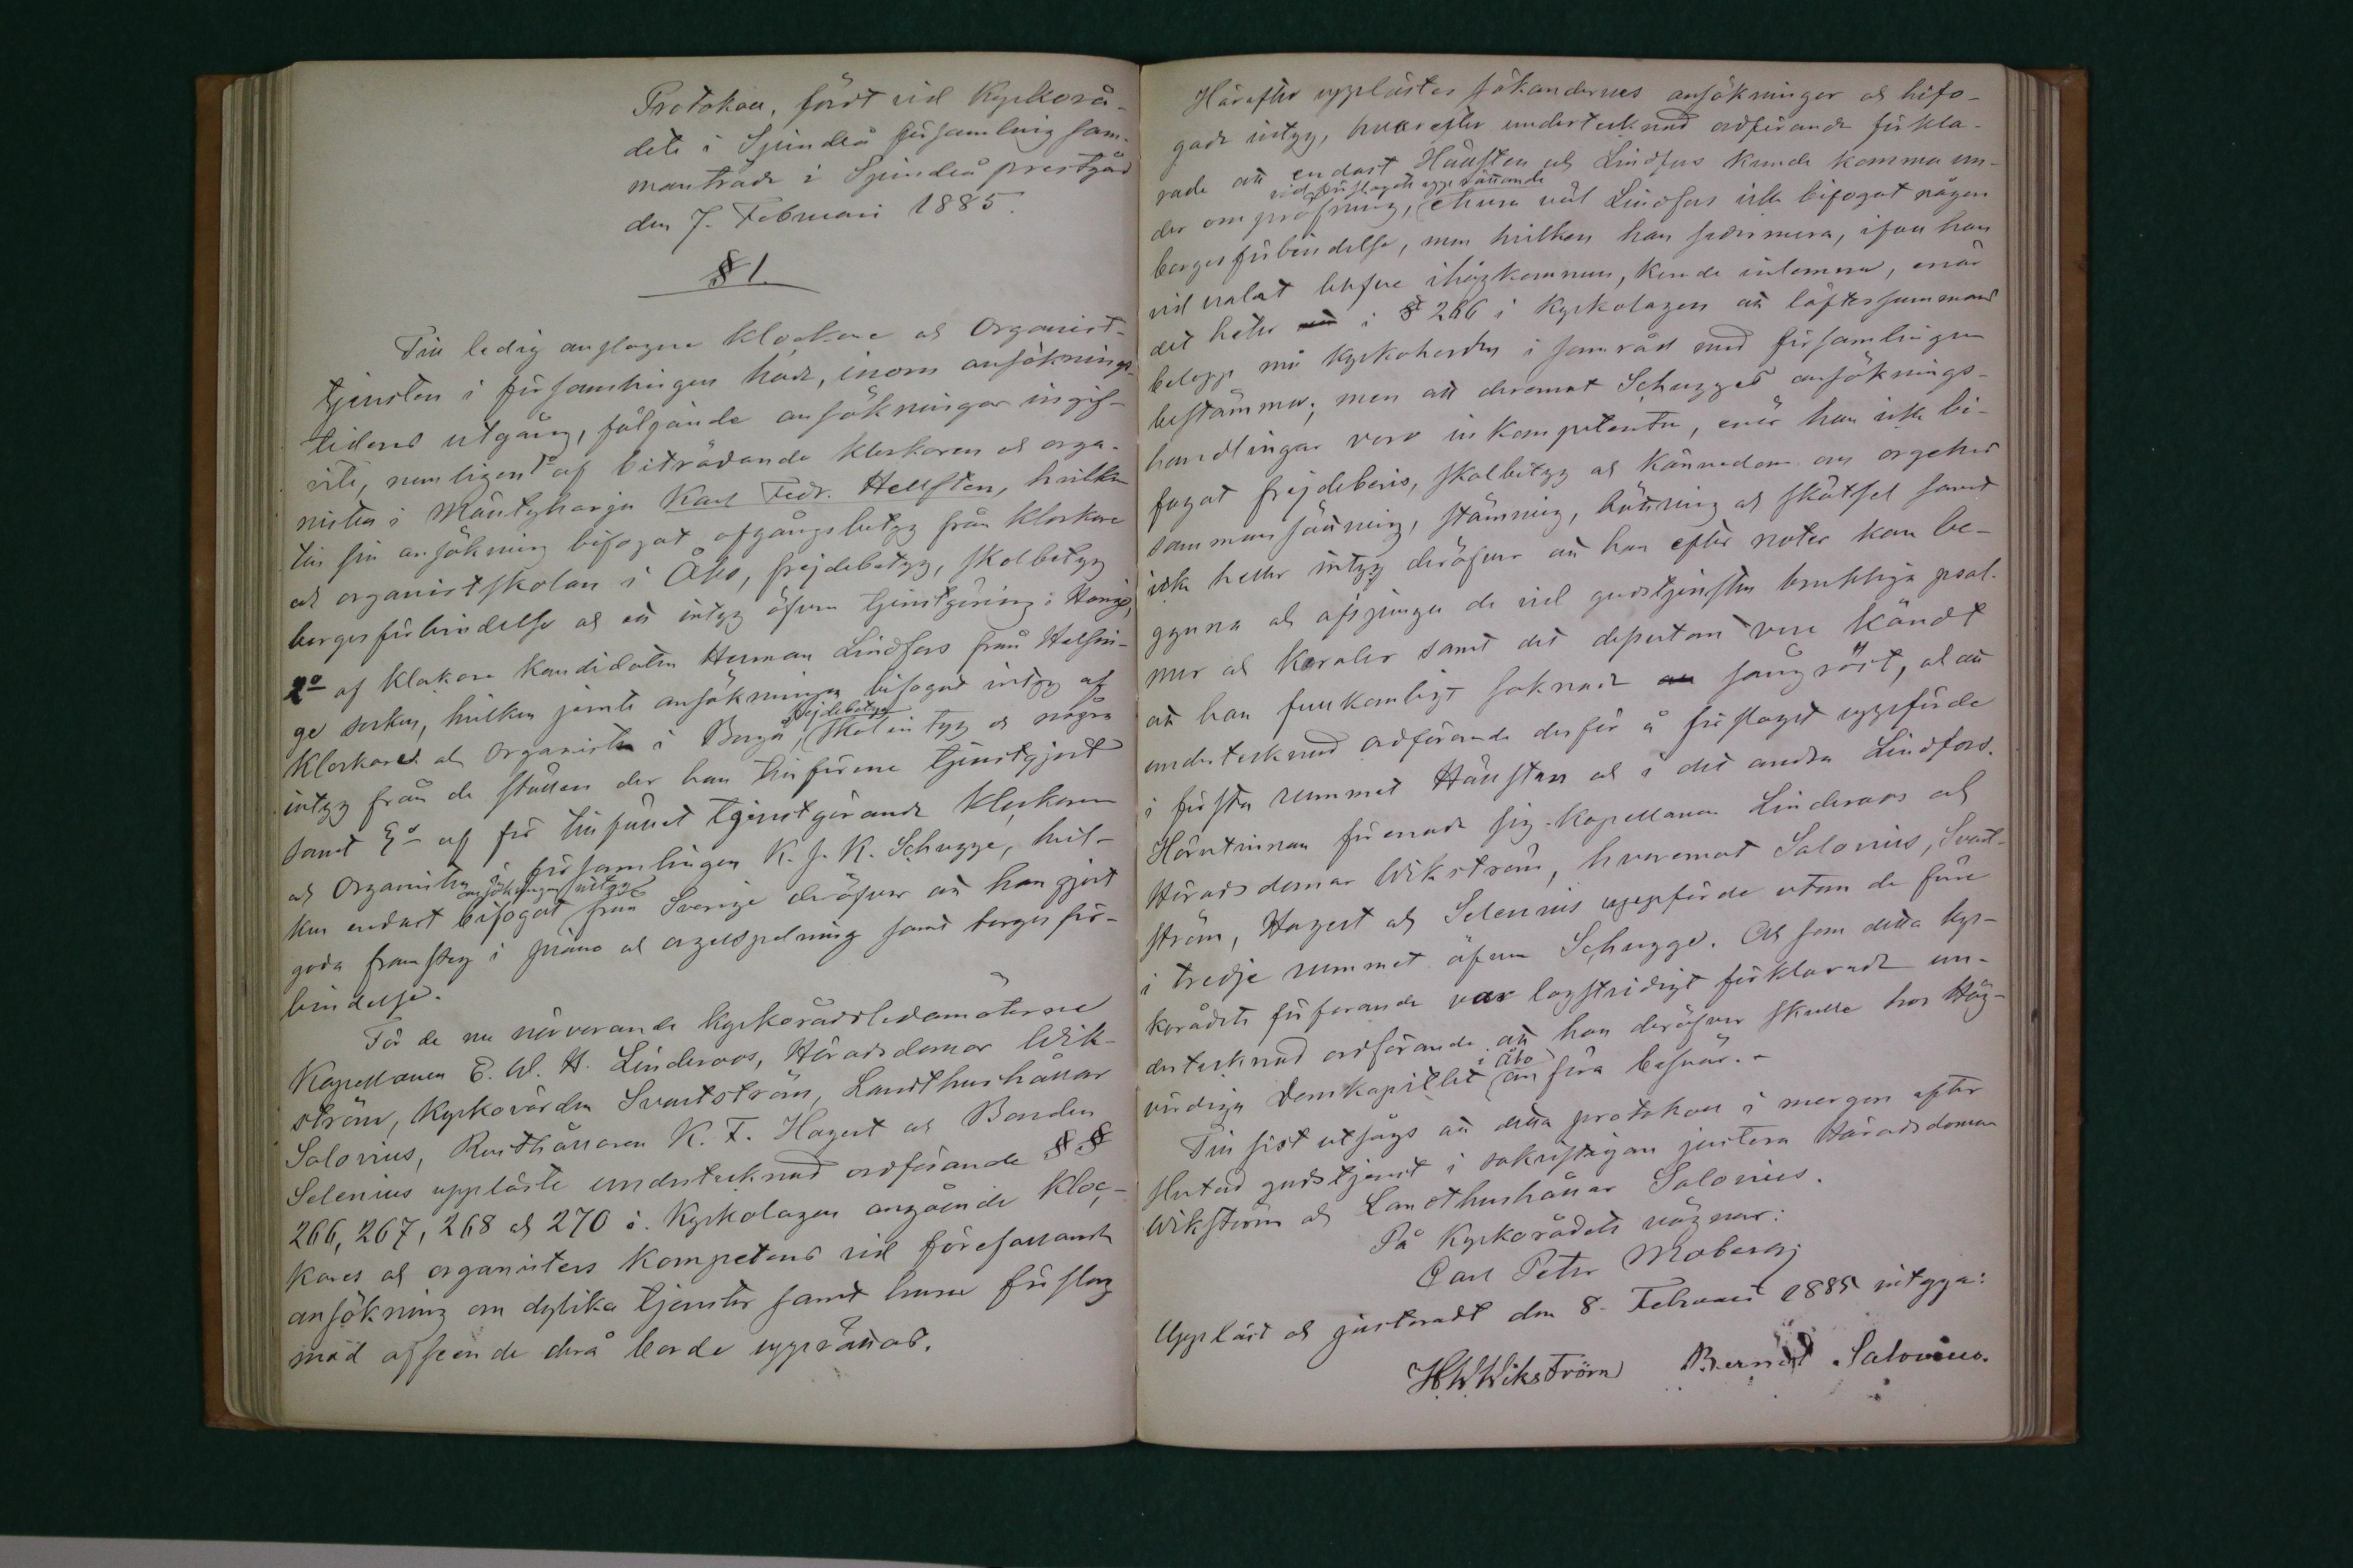 Protokoll, fördt vid Kyrkorå-
dets i Sjundeå församling sam-
manträde i Sjundeå prestgård
den 7. Februari 1885.
§ 1.
Till ledig anslagne klockare och Organist-
tjensten i församlingen hade, inom ansöknings-
tidens utgång, följande ansökningar ingif-
vits, nemligen 1º af biträdande klockaren och orga-
nisten i Mäntyharju Karl Fedr. Hellsten, hvilken
till sin ansökning bifogat afgångsbetyg från klockare
och organistskolan i Åbo, frejdebetyg, skolbetyg
borgesförbindelse och ett intyg öfver tjenstgöring i Hangö,
2º af klockare kandidaten Herman Lindfors från Helsin-
ge socken, hvilken jemte ansökningen bifogat intyg af
klockaren och organisten i Borgå, frejdebetyg, skolintyg och några
intyg från de ställen der han tillförene tjenstgjort
samt 3º af för tillfället tjenstgörande klockaren
och Organisten i församlingen K. J. K. Schugge, hvil-
ken endast ansökningen bifogat intyg från Sverige deröfver att han gjort
goda framsteg i piano och orgelspelning samt borgesför-
bindelse.
För de nu närvarande kyrkorådsledamöterne
Kapellanen E. W. H. Linderoos, Häradsdomar Wik-
ström, Kyrkovärden Svartström, Landthushållar
Salovius, Rusthållaren K. F. Hagert och Bonden
Selenius uppläste undertecknad ordförande §§
266, 267, 268 och 270 i Kyrkolagen angående Kloc-
kares och organisters kompetens vid förefallande
ansökning om dylika tjenster samt huru förslag
med afseende derå borde upprättas.
Härefter upplästes sökandernes ansökningar och bifo-
gade intyg, hvarefter undertecknad ordförande förkla-
rade att endast Hällsten och Lindfors kunde komma un-
der ompröfning, vid förslagets upprättande ehuru väl Lindfors icke bifogat någon
borgesförbindelse, men hvilken han sedermera, ifall han
vid valet blefve ihågkommen, kunde inlemna, enär
det heter i § 266 i Kyrkolagen att löftessummans
belopp må Kyrkoherden i samråd med församlingen
bestämma; men att deremot Schugges ansöknings-
handlingar voro inkompetenta, enär han icke bi-
fogat frejdebevis, skolbetyg och kännedom om orgelns
sammansättning, stämning, bättring och skötsel samt
icke heller intyg deröfver att han efter noter kan be-
gynna och afsjunga de vid gudstjensten brukliga psal-
mer och Koraler samt det dessutom vore kändt
att han fullkomligt saknade sångröst, och att
undertecknad ordförande derför å förslaget uppförde
i första rummet Hällsten och i det andra Lindfors.
Härutinnan förenade sig Kapellanen Linderoos och
Häradsdomar Wikström, hvaremot Salovius, Svart-
ström, Hagert och Selenius uppförde utom de förre
i tredje rummet äfven Schugge. Och som detta kyr-
korådets förfarande var lagstridigt förklarade un-
dertecknad ordförande att han deröfver skulle hos Hög-
vördiga Domkapitlet i Åbo anföra besvär. -
Till sist utsågs att detta protokoll i morgon efter
slutad gudstjenst i sakristigan justera Häradsdomar
Wikström och Landthushållar Salovius.
På Kyrkorådets vägnar:
Carl Peter Moberg
Uppläst och justeradt den 8. Februari 1885 intyga:
H W Wikström Bernd Salovius.